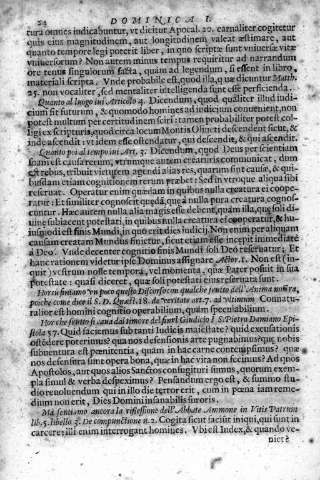 24 DOMINICA I.
tura omnes indicabuntur, vt dicitur Apocal. 20. carnaliter cogitetur
quis eius magnitudinem, aut longitudinem valeat æstimare, aut
quanto tempore legi poterit liber, in quo scriptæ sunt vniuersæ vitæ
vniuersorum? Non autem minus tempus requiritur ad narrandum
ore tenus singulorum facta, quàm ad legendum, si essent in libro,
materiali scripta. Vnde probabile est, quod illa, quæ dicuntur Matth.
25. non vocaliter, sed mentaliter intelligenda sunt esse perficienda.
Quanto al luogo ini Articolo 4. Dicendum, quod qualiter illud iudi-
cium sit futurum, & quomodo homines ad iudicium conuenient, non
potest multum per certitudinem sciri: tamen probabiliter potest col-
ligi ex scripturis, quod circa locum Montis Oliueti descendent sicut, &
inde ascendit: vt idem esse ostendatur, qui descendit, & qui ascendit.
Quanto poi al tempo ini Art. 3. Dicendum, quod Deus per scientiam
suam est causa rerum, vtrumque autem creaturis communicat, dum
est rebus, tribuit virtutem agendi alias res, quarum sint causæ, & qui-
busdam etiam cognitionem rerum præbet: Sed in vtroque aliqua sibi
reseruat. Operatur enim quædam in quibus nulla creatura ei coope-
ratur: Et similiter cognoscit quædã, quæ à nulla pura creatura cognos-
cuntur. Hæc autem nulla alia magis esse debent, quàm illa, quæ soli di-
uinæ subiacent potestati, in quibus nulla creatura ei cooperatur, & hu-
iusmodi est finis Mundi, in quo erit dies iudicij. Non enim per aliquam
causam creatam Mundus finietur, sicut etiam esse incepit immediatè
à Deo. Vnde decenter cognitio finis Mundi soli Deo reseruatur. Et
hanc rationem videtur ipse Dominus assignare Actor. 1. Non est (in-
quit) vestrum nosse tempora, vel momenta, quæ Pater posuit in sua
potestate: quasi diceret, quæ soli potestati eius reseruata sunt.
ralior est homini cognitio operabilium, quàm speculabilium.
stola 57. Quid faciemus sub tanti Iudicis maiestate? quid excusationis
ostēdere poterimus? qua nos defensionis arte purgabimus? quæ nobis
subuentura est pœnitentia, quam in hac carne contempsimus? quæ
nos defensura sunt opera bona, quæ in hac vita non fecimus? Ad quos
Apostolos, aut quos alios Sanctos confugituri sumus, quorum exem-
pla simul & verba despeximus? Pensandum ergo est, & summo stu-
dio reuoluendum qui in illo die terror erit, cum in pœna iam reme-
dium non erit, Dies Domini insanabilis furoris.
Ma sentiamo ancora la riflessione dell' Abbate Ammone in Vitis Patrum
lib. 5. libello 3. De compunctione n. 2. Cogita sicut faciūt iniqui, qui sunt in
carcere: illi enim interrogant homines. Vbi est Index, & quando ve-
niet &